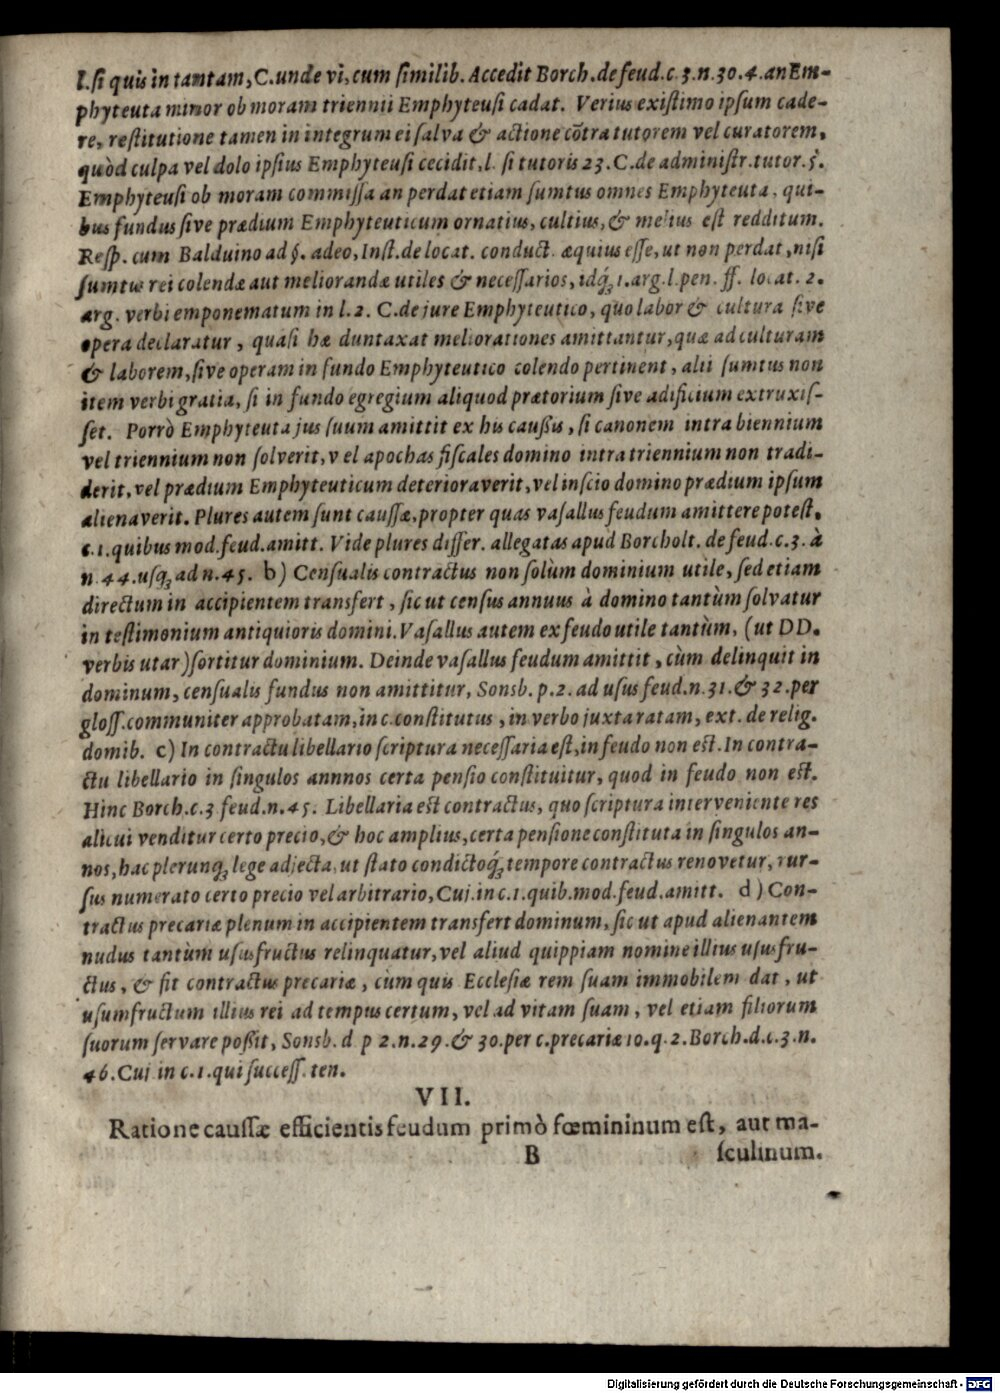 l. ſi quis in tantam, C. unde vi, cum ſimilib. Accedit Borch. de feud. c. 3. n. 30. 4. an Em-
phyteuta minor ob moram triennii Emphyteuſi cadat. Verius exiſtimo ipſum cade-
re, reſtitutione tamen in integrum ei ſalva & actione cõtra tutorem vel curatorem,
quòd culpa vel dolo ipſius Emphyteuſi cecidit, l. ſi tutoris 23. C. de adminiſtr. tutor. 5.
Emphyteuſi ob moram commiſſa an perdat etiam ſumtus omnes Emphyteuta, qui-
bus fundus ſive prædium Emphyteuticum ornatius, cultius, & melius eſt redditum.
Reſp. cum Balduino ad §. adeo, Inſt. de locat. conduct. æquius eſſe, ut non perdat, niſi
ſumtus rei colendæ aut meliorandæ utiles & neceſſarios, idq́; 1. arg. l. pen. ff. locat. 2.
arg. verbi emponematum in l. 2. C. de jure Emphyteutico, quo labor & cultura ſive
opera declaratur, quaſi hæ duntaxat meliorationes amittantur, quæ ad culturam
& laborem, ſive operam in fundo Emphyteutico colendo pertinent, alii ſumtus non
item verbi gratia, ſi in fundo egregium aliquod prætorium ſive ædificium extruxiſ-
ſet. Porrò Emphyteuta jus ſuum amittit ex his cauſsis, ſi canonem intra biennium
vel triennium non ſolverit, v el apochas fiſcales domino intra triennium non tradi-
derit, vel prædium Emphyteuticum deterioraverit, vel inſcio domino prædium ipſum
alienaverit. Plures autem ſunt cauſſæ, propter quas vaſallus feudum amittere poteſt,
c. 1. quibus mod. feud. amitt. Vide plures differ. allegatas apud Borcholt. de feud. c. 3. à
n. 44. uſq; ad n. 45. b) Cenſualis contractus non ſolùm dominium utile, ſed etiam
directum in accipientem transfert, ſic ut cenſus annuus à domino tantùm ſolvatur
in teſtimonium antiquioris domini. Vaſallus autem ex feudo utile tantùm, (ut DD.
verbis utar) ſortitur dominium. Deinde vaſallus feudum amittit, cùm delinquit in
dominum, cenſualis fundus non amittitur, Sonsb. p. 2. ad uſus feud. n. 31. & 32. per
gloſſ. communiter approbatam, in c. conſtitutus, in verbo juxta ratam, ext. de relig.
domib. c) In contractu libellario ſcriptura neceſſaria eſt, in feudo non eſt. In contra-
ctu libellario in ſingulos annnos certa penſio conſtituitur, quod in feudo non eſt.
Hinc Borch. c. 3 feud. n. 45. Libellaria eſt contractus, quo ſcriptura interveniente res
alicui venditur certo precio, & hoc amplius, certa penſione conſtituta in ſingulos an-
nos, hac plerunq; lege adjecta, ut ſtato condictoq́; tempore contractus renovetur, rur-
ſus numerato certo precio vel arbitrario, Cuj. in c. 1. quib. mod. feud. amitt. d) Con-
tractus precariæ plenum in accipientem transfert dominum, ſic ut apud alienantem
nudus tantùm uſusfructus relinquatur, vel aliud quippiam nomine illius uſusfru-
ctus, & fit contractus precariæ, cùm quis Eccleſiæ rem ſuam immobilem dat, ut
uſumfructum illius rei ad tempus certum, vel ad vitam ſuam, vel etiam filiorum
ſuorum ſervare poßit, Sonsb. d p 2. n. 29. & 30. per c. precariæ 10. q. 2. Borch. d. c. 3. n.
46. Cuj in c. 1. qui ſucceſſ. ten.
VII.
Ratione cauſſæ efficientis feudum primò fœmininum eſt, aut ma-
B ſculinum.
Digitalisierung gefördert durch die Deutsche Forschungsgemeinschaft - DFG